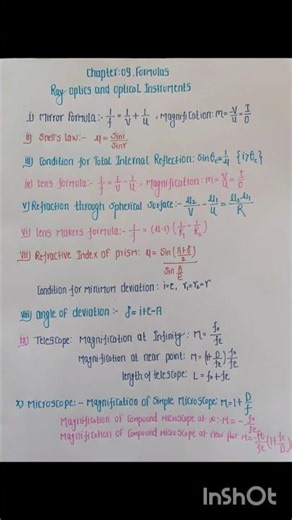 Chapter:09. Formulas
Ray optics and optical Instruments
i) Mirror Formula:- 1/f = 1/v + 1/u , Magnification: m = v/u = I/O
ii) Snell's Law:- μ = Sini/Sinr
iii) Condition for Total Internal Reflection: Sinθc = 1/μ {i>θc}
iv) Lens formula:- 1/f = 1/v - 1/u , Magnification: m = v/u = I/O
v) Refraction through Spherical Surface:- μ2/v - μ1/u = μ2-μ1/R
vi) Lens makers formula:- 1/f = (μ-1) (1/R1 - 1/R2)
vii) Refractive Index of prism: μ = Sin(A+δ/2)/Sin A/2
Condition for Minimum deviation: i=e, r1=r2=r
viii) Angle of deviation:- δ = i+e-A
ix) Telescope: Magnification at Infinity: M = fo/fe
Magnification at near point: M = (1+ D/fe) fo/fe
length of telescope: L = fo + fe
x) Microscope:- Magnification of Simple Microscope: M = 1+ D/f
Magnification of Compound Microscope at ∞: M = - fo/fe
Magnification of Compound Microscope at near
InShOt